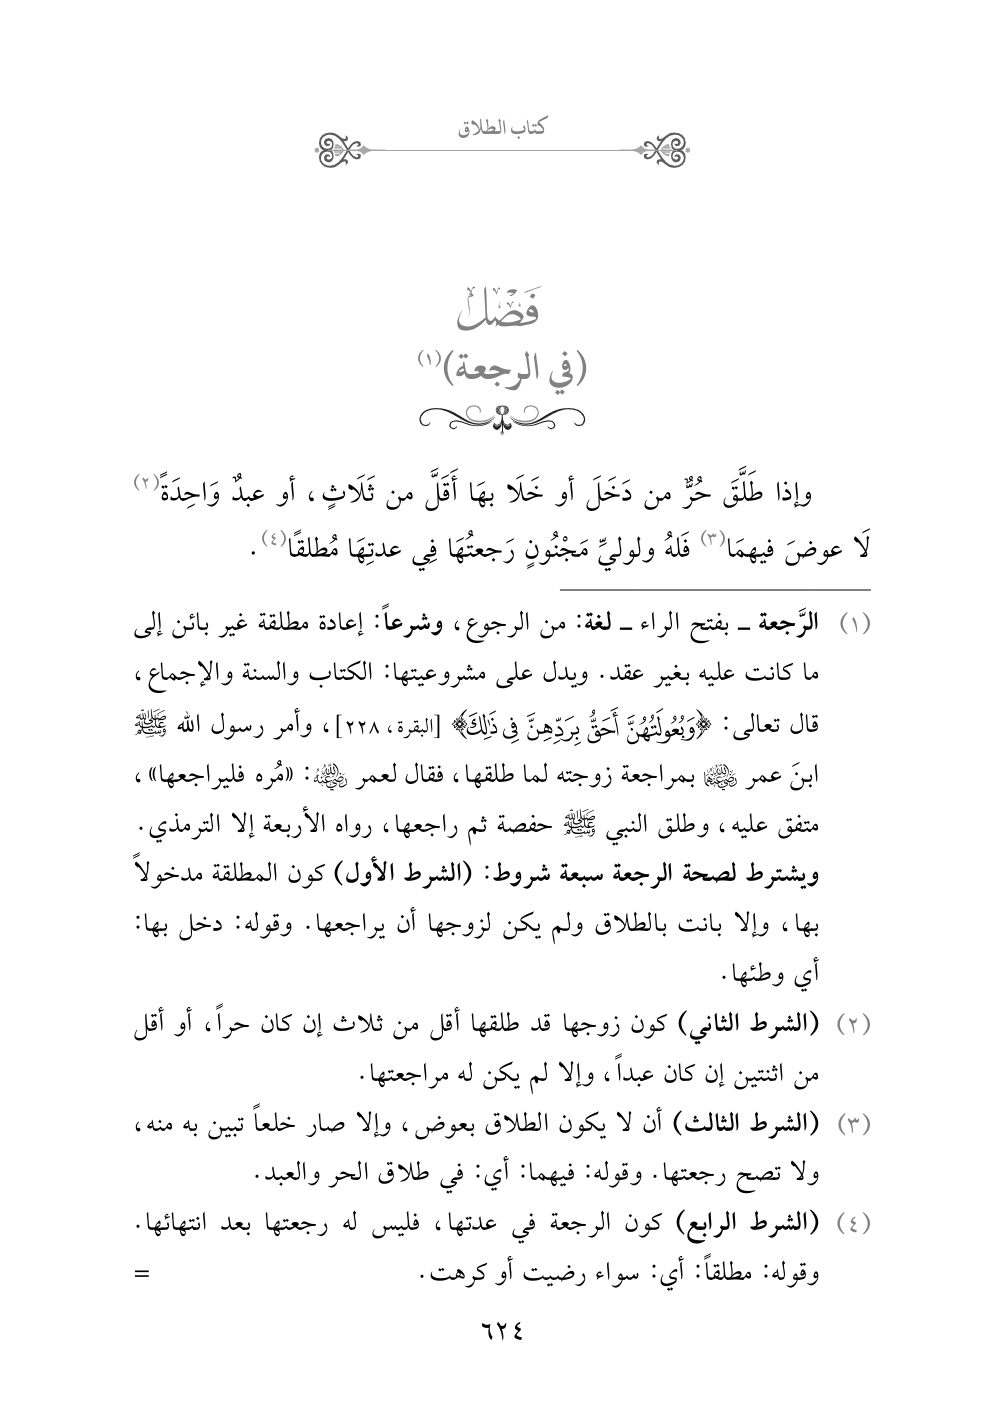 كتاب الطلاق
فَصْل
(في الرجعة)(١)
وإذا طَلَّقَ حُرٌّ من دَخَلَ أو خَلَا بهَا أَقَلَّ من ثَلَاثٍ، أو عبدٌ وَاحِدَةً(٢)
لَا عوضَ فيهمَا(٣) فَلهُ ولوليِّ مَجْنُونٍ رَجعتُهَا فِي عدتِهَا مُطلقًا(٤).
(١) الرَّجعة ـ بفتح الراء ـ لغة: من الرجوع، وشرعاً: إعادة مطلقة غير بائن إلى
ما كانت عليه بغير عقد. ويدل على مشروعيتها: الكتاب والسنة والإجماع،
قال تعالى: ﴿وَبُعُولَتُهُنَّ أَحَقُّ بِرَدِّهِنَّ فِى ذَٰلِكَ﴾ [البقرة، ٢٢٨]، وأمر رسول الله ﷺ
ابنَ عمر رضي الله عنهما بمراجعة زوجته لما طلقها، فقال لعمر رضي الله عنه: «مُره فليراجعها»،
متفق عليه، وطلق النبي ﷺ حفصة ثم راجعها، رواه الأربعة إلا الترمذي.
ويشترط لصحة الرجعة سبعة شروط: (الشرط الأول) كون المطلقة مدخولاً
بها، وإلا بانت بالطلاق ولم يكن لزوجها أن يراجعها. وقوله: دخل بها:
أي وطئها.
(٢) (الشرط الثاني) كون زوجها قد طلقها أقل من ثلاث إن كان حراً، أو أقل
من اثنتين إن كان عبداً، وإلا لم يكن له مراجعتها.
(٣) (الشرط الثالث) أن لا يكون الطلاق بعوض، وإلا صار خلعاً تبين به منه،
ولا تصح رجعتها. وقوله: فيهما: أي: في طلاق الحر والعبد.
(٤) (الشرط الرابع) كون الرجعة في عدتها، فليس له رجعتها بعد انتهائها.
وقوله: مطلقاً: أي: سواء رضيت أو كرهت. =
٦٢٤